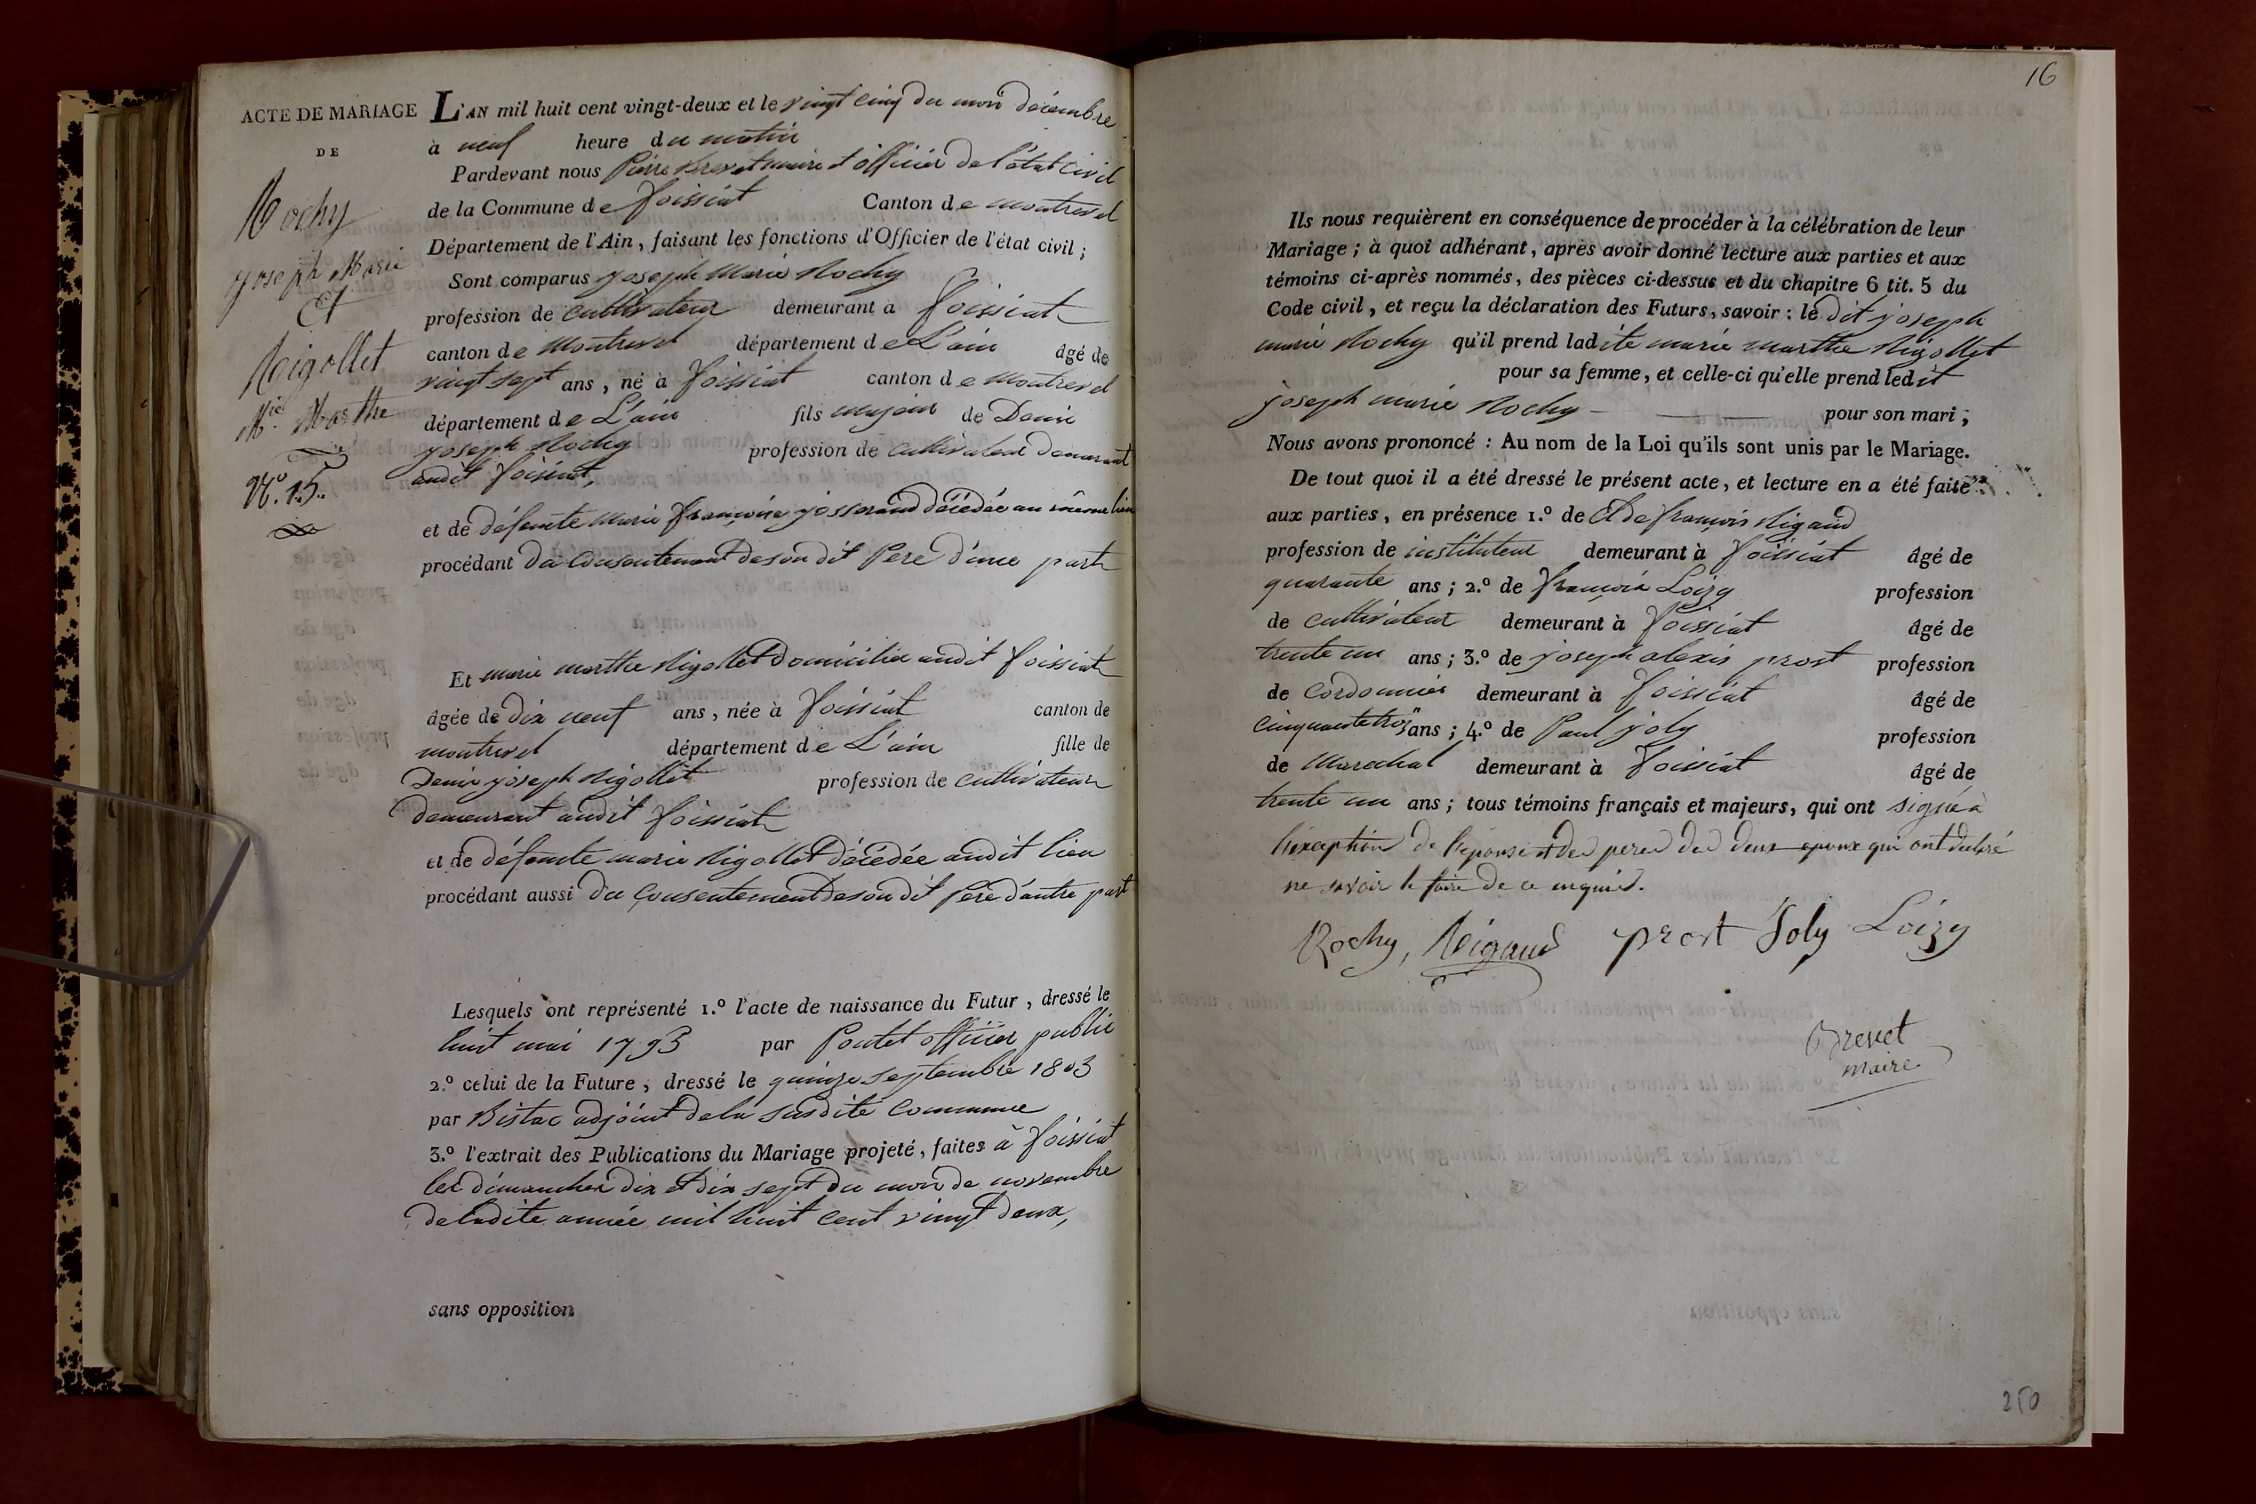 ACTE DE MARIAGE
DE
Rochy
joseph Marie
Et
Rigollet
M.ie Marthe
N.o 15.
L'AN mil huit cent vingt-deux et le vingt cinq du mois décembre
à neuf heure du matin
Pardevant nous Pierre Brevet maire et officier de l'état civil
de la Commune de foissiat Canton de montrevel
Département de l'Ain, faisant les fonctions d'Officier de l'état civil;
Sont comparus joseph Marie Rochy
profession de cultivateur demeurant à foissiat
canton de Montrevel département de L'ain âgé de
vingt sept ans, né à foissiat canton de montrevel
département de L'ain fils majeur de Denis
joseph Rochy profession de cultivateur demeurant
audit foissiat,
et de défunte marie françoise josserand décédée au même lieu
procédant du consentement de son dit Pere d'une part
Et marie marthe Rigollet domiciliée audit foissiat
âgée de dix neuf ans, née à foissiat canton de
montrevel département de L'ain fille de
Denis joseph Rigollet profession de cultivateur
demeurant audit foissiat
et de défunte marie Rigollet décédée audit lieu
procédant aussi du consentement de son dit Pere d'autre part
Lesquels ont représenté 1.º l'acte de naissance du Futur, dressé le
huit mai 1793 par Poutet officier public
2.º celui de la Future, dressé le quinze septembre 1803
par Bistac adjoint de la susdite Commune
3.º l'extrait des Publications du Mariage projeté, faites à foissiat
les dimanches dix et dix sept du mois de novembre
de ladite année mil huit cent vingt deux,
sans opposition
16
Ils nous requièrent en conséquence de procéder à la célébration de leur
Mariage; à quoi adhérant, après avoir donné lecture aux parties et aux
témoins ci-après nommés, des pièces ci-dessus et du chapitre 6 tit. 5 du
Code civil, et reçu la déclaration des Futurs, savoir: le dit joseph
marie Rochy qu'il prend ladite marie marthe Rigollet
pour sa femme, et celle-ci qu'elle prend ledit
joseph marie Rochy pour son mari;
Nous avons prononcé: Au nom de la Loi qu'ils sont unis par le Mariage.
De tout quoi il a été dressé le présent acte, et lecture en a été faite
aux parties, en présence 1.º de Cl de françois Rigaud
profession de instituteur demeurant à foissiat âgé de
quarante ans; 2.º de françois Loizy profession
de cultivateur demeurant à foissiat âgé de
trente un ans; 3.º de joseph alexis prost profession
de Cordonnier demeurant à foissiat âgé de
cinquante trois ans; 4.º de Paul joly profession
de Marechal demeurant à foissiat âgé de
trente un ans; tous témoins français et majeurs, qui ont signé à
l'exception de l'épouse et des peres des deux epoux qui ont declaré
ne savoir le faire de ce enquis.
Rochy, Rigaud prost Joly Loizy
Brevet
maire
250